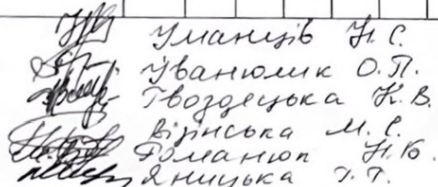 Уманців Н. С.
Іванюлик О. П.
Гвоздецька К. В.
Візінська М. С.
Романюк Н. Ю.
Яницька Т. Т.